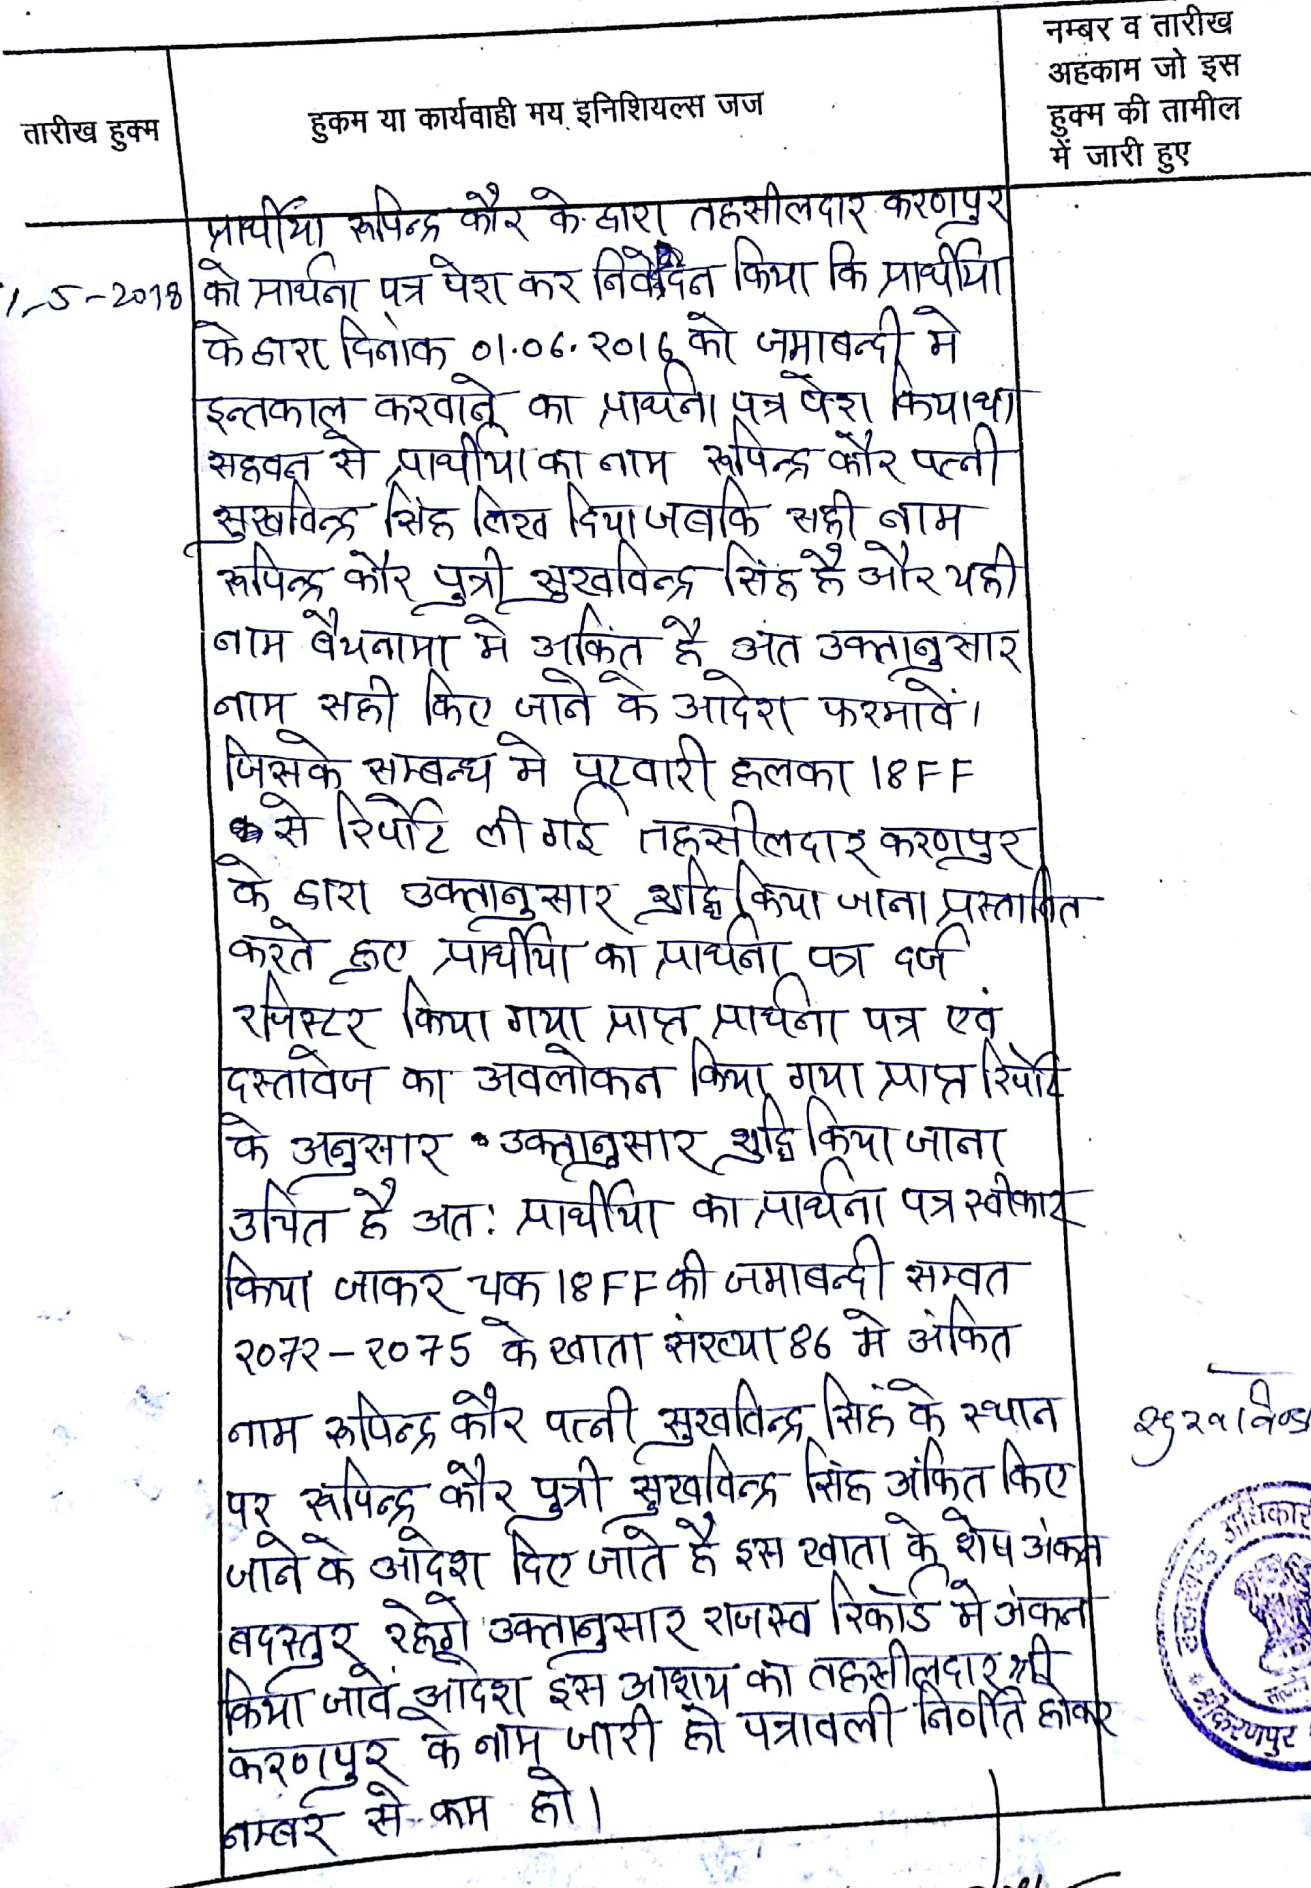 नम्बर व तारीख
अहकाम जो इस
हुक्म की तामील
में जारी हुए
तारीख हुक्म
हुकम या कार्यवाही मय इनिशियल्स जज
प्रार्थीया रूपिन्द्र कौर के द्वारा तहसीलदार करणपुर
-5-2018 को प्रार्थना पत्र पेश कर निवेदन किया कि प्रार्थीया
के द्वारा दिनांक 01.06.2016 को जमाबन्दी मे
इन्तकाल करवाने का प्रार्थना पत्र पेश किया था
सहवन से प्रार्थीया का नाम रूपिन्द्र कौर पत्नी
सुखविन्द्र सिंह लिख दिया जबकि सही नाम
रूपिन्द्र कौर पुत्री सुखविन्द्र सिंह है और यही
नाम बैयनामा मे अकिंत है अंत उक्तानुसार
नाम सही किए जाने के आदेश फरमावें।
जिसके सम्बन्ध मे पटवारी हलका 18FF
से रिर्पोट ली गई तहसीलदार करणपुर
के द्वारा उक्तानुसार शुद्धि किया जाना प्रस्तावित
करते हुए प्रार्थीया का प्रार्थना पत्र दर्ज
रजिस्टर किया गया प्राप्त प्रार्थना पत्र एवं
दस्तावेज का अवलोकन किया गया प्राप्त रिर्पोट
के अनुसार उक्तानुसार शुद्धि किया जाना
उचित है अत: प्रार्थीया का प्रार्थना पत्र स्वीकार
किया जाकर चक 18FF की जमाबन्दी सम्वत
2072-2075 के खाता संख्या 86 मे अंकित
नाम रूपिन्द्र कौर पत्नी सुखविन्द्र सिंह के स्थान
पर रूपिन्द्र कौर पुत्री सुखविन्द्र सिंह अंकित किए
जाने के आदेश दिए जाते है इस खाता के शेष अंकन
बदस्तुर रहेगें उक्तानुसार राजस्व रिकॉर्ड मे अंकन
किया जावें आदेश इस आशय का तहसीलदार श्री
करणपुर के नाम जारी हो पत्रावली निर्णीत होकर
नम्बर से कम हो।
सुखविन्द्र
उपखण्ड अधिकार
श्रीकरणपुर